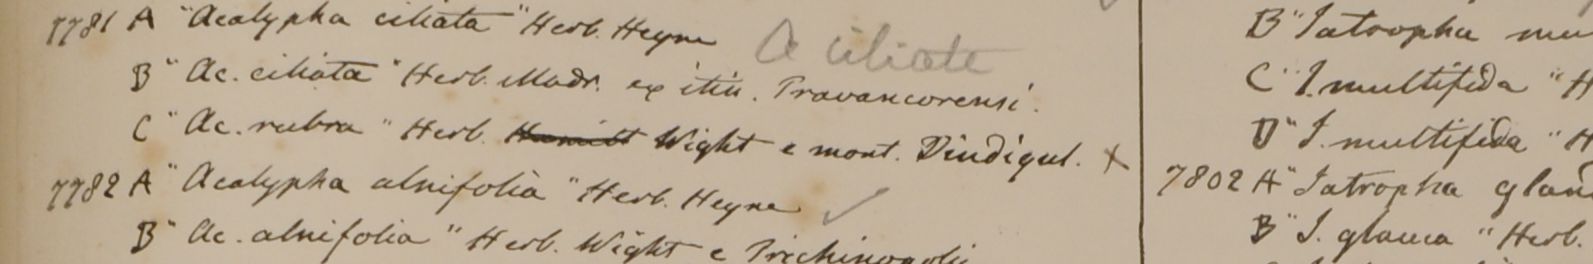 7781 A "Acalypha ciliata" Herb. Heyne A ciliata
B "Ac. ciliata" Herb. Madr. ex itin. Travancorensi.
C "Ac. rubra" Herb. Wight e mont. Dindigul. x
7782 A "Acalypha alnifolia" Herb. Heyne ✓
B "Ac. alnifolia" Herb. Wight e Trichinopoli
B "Jatropha mu
C "J. multifida "H
D "J. multifida "H
7802 A "Jatropha glau
B "J. glauca "Herb.